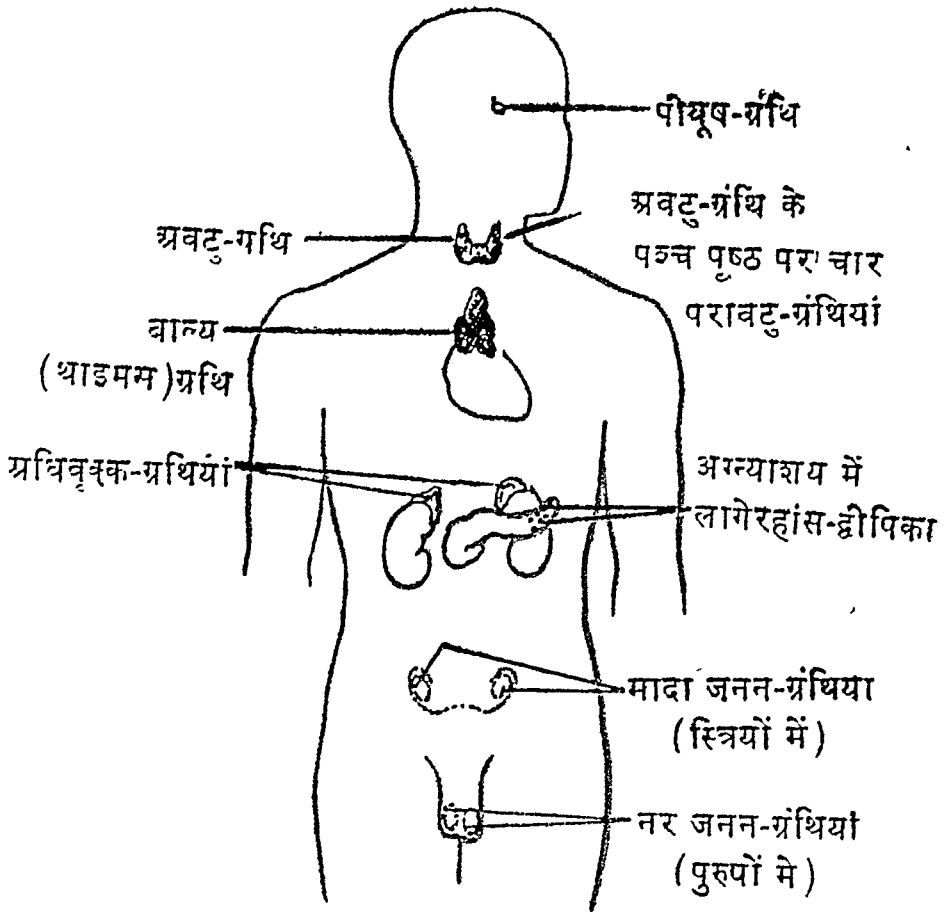 पीयूष-ग्रंथि
अवटु-ग्रंथि के
पश्च पृष्ठ पर चार
परावटु-ग्रंथियां
अवटु-गथि
बाल्य
(थाइमस)ग्रथि
अधिवृक्क-ग्रथियां
अग्न्याशय में
लागेरहांस-द्वीपिका
मादा जनन-ग्रंथिया
(स्त्रियों में)
नर जनन-ग्रंथियां
(पुरुषों मे)